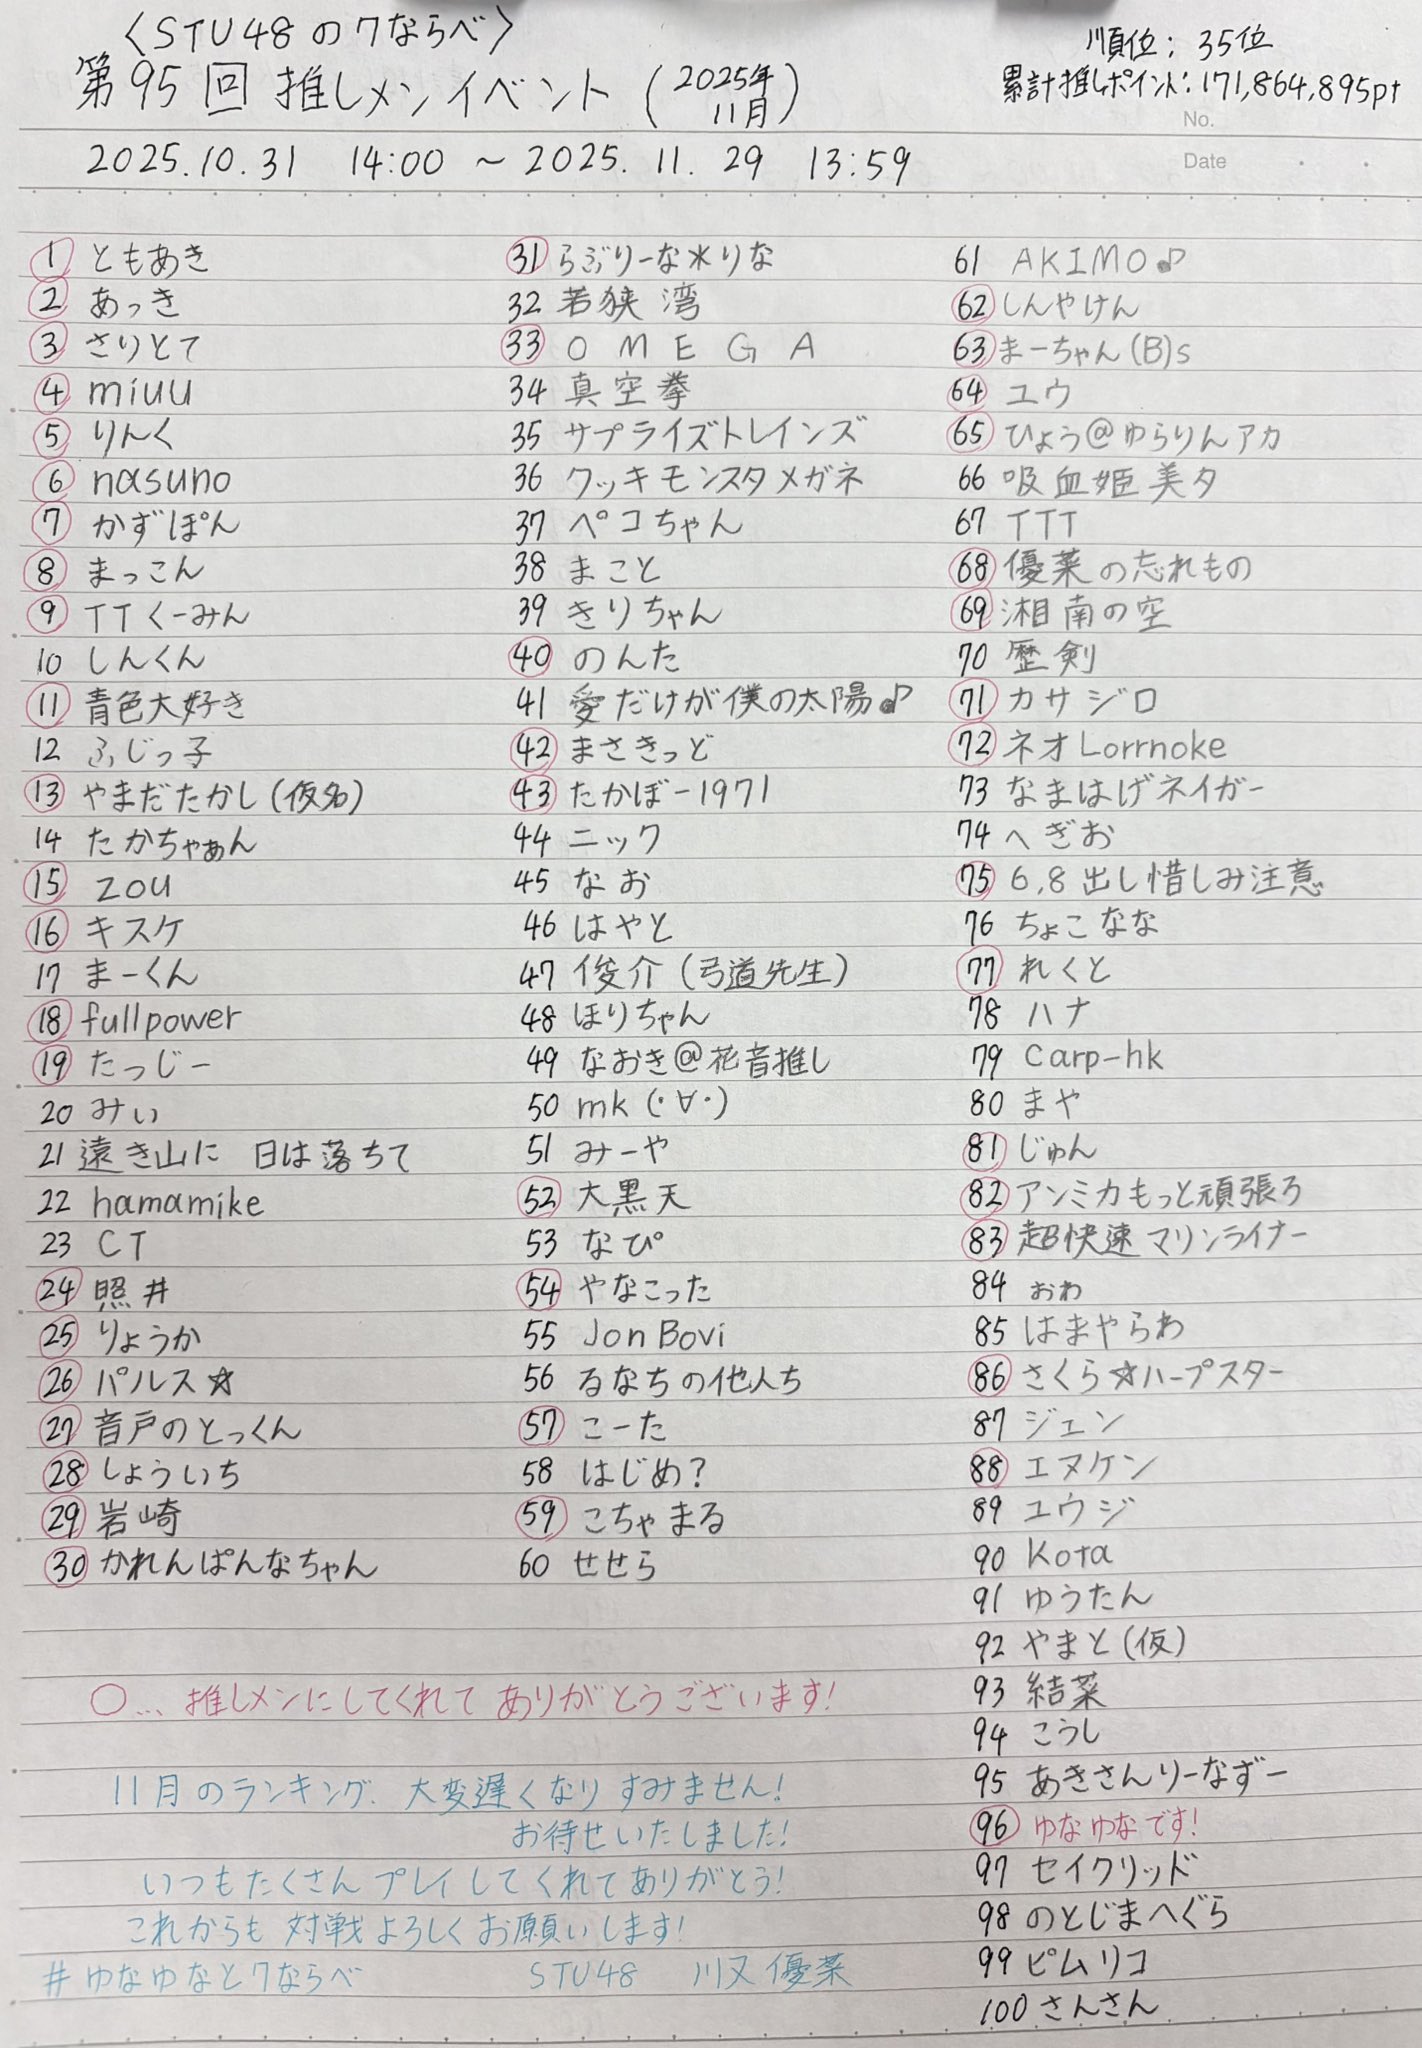 〈STU48の7ならべ〉
第95回 推しメンイベント (2025年11月)
順位: 35位
累計推しポイント: 171,864,895pt
No.
Date
2025.10.31 14:00 ~ 2025.11.29 13:59
1 ともあき
2 あっき
3 さりとて
4 miuu
5 りんく
6 nasuno
7 かずぽん
8 まっこん
9 TTくーみん
10 しんくん
11 青色大好き
12 ふじっ子
13 やまだたかし(仮名)
14 たかちゃぁん
15 zou
16 キスケ
17 まーくん
18 fullpower
19 たっじー
20 みぃ
21 遠き山に 日は落ちて
22 hamamike
23 CT
24 照井
25 りょうか
26 パルス☆
27 音戸のとっくん
28 しょういち
29 岩崎
30 かれんぱんなちゃん
31 らぶりーな*りな
32 若狭湾
33 OMEGA
34 真空拳
35 サプライズトレインズ
36 クッキモンスタメガネ
37 ペコちゃん
38 まこと
39 きりちゃん
40 のんた
41 愛だけが僕の太陽♪
42 まさきっど
43 たかぼー1971
44 ニック
45 なお
46 はやと
47 俊介(弓道先生)
48 ほりちゃん
49 なおき@花音推し
50 mk(・∀・)
51 みーや
52 大黒天
53 なぴ
54 やなこった
55 Jon Bovi
56 るなちの他人ち
57 こーた
58 はじめ?
59 こちゃまる
60 せせら
61 AKIMO♪
62 しんやけん
63 まーちゃん(B)s
64 ユウ
65 ひょう@ゆらりんアカ
66 吸血姫美夕
67 TTT
68 優菜の忘れもの
69 湘南の空
70 歴剣
71 カサジロ
72 ネオLorrnoke
73 なまはげネイガー
74 へぎお
75 6,8出し惜しみ注意
76 ちょこなな
77 れくと
78 ハナ
79 Carp-hk
80 まや
81 じゅん
82 アンミカもっと頑張ろ
83 超快速マリンライナー
84 ぉゎ
85 はまやらわ
86 さくら☆ハープスター
87 ジェン
88 エヌケン
89 ユウジ
90 Kota
91 ゆうたん
92 やまと(仮)
93 結菜
94 こうし
95 あきさんりーなずー
96 ゆなゆなです!
97 セイクリッド
98 のとじまへぐら
99 ピムリコ
100 さんさん
○…推しメンにしてくれてありがとうございます!
11月のランキング、大変遅くなりすみません!
お待せいたしました!
いつもたくさんプレイしてくれてありがとう!
これからも対戦よろしくお願いします!
#ゆなゆなと7ならべ STU48 川又優菜